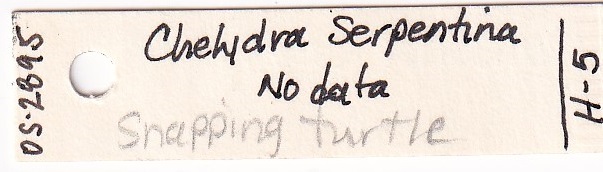 OS-2895
Chelydra Serpentina
No data
Snapping turtle
H-5